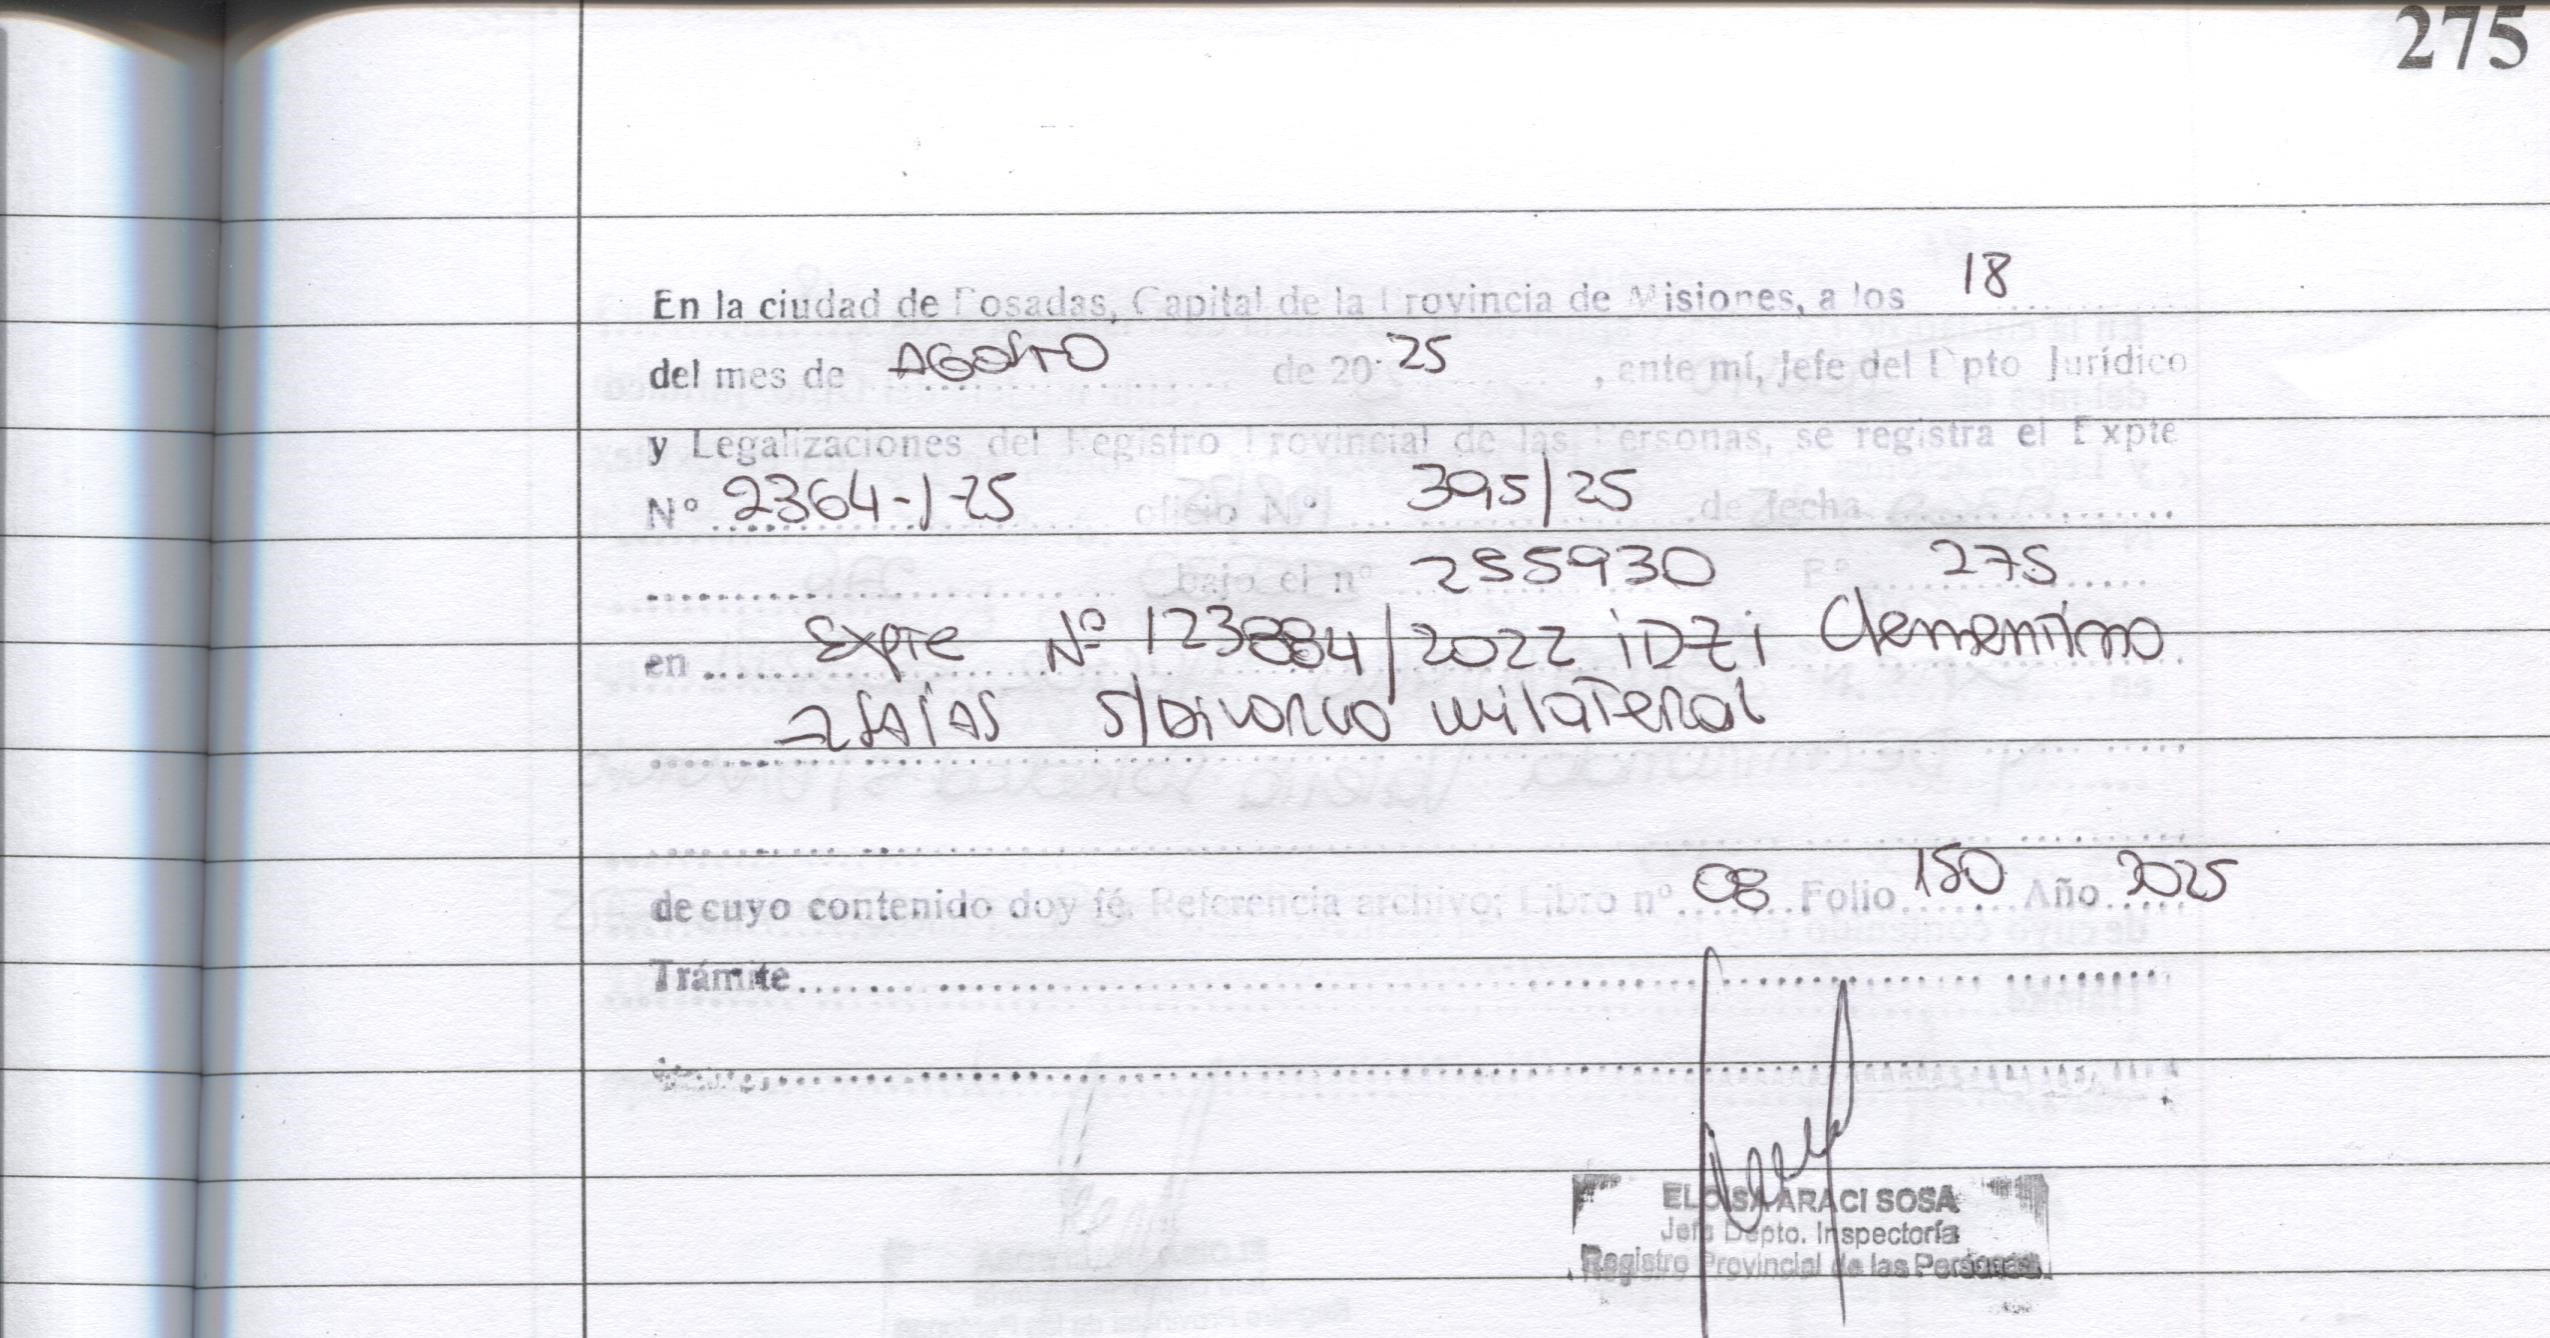 275
En la ciudad de Posadas, Capital de la Provincia de Misiones, a los 18
del mes de AGOSTO de 20 25, ante mí, Jefe del Dpto Jurídico
y Legalizaciones del Registro Provincial de las Personas, se registra el Expte
Nº 2364-J-25 oficio Nº 395/25 de fecha
bajo el nº 255930 Fº 275
en Expte Nº 123884/2022 iDZi Clementino
ISAÍAS s/Divorcio unilateral
de cuyo contenido doy fé. Referencia archivo: Libro nº 08 Folio 150 Año 2025
Trámite
ELOISA ARACI SOSA
Jefe Depto. Inspectoría
Registro Provincial de las Personas